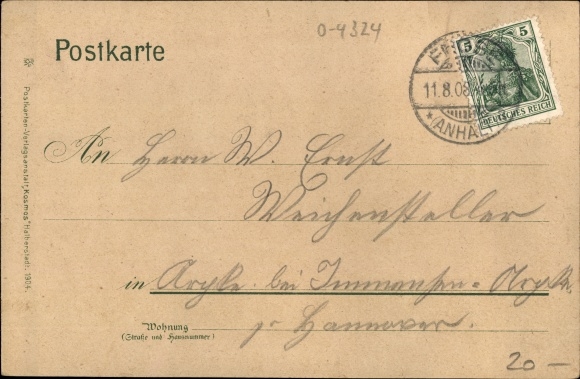 O-4324
Postkarte
5 5
11.8.08
*(ANHALT)
DEUTSCHES REICH
An Herrn W. Ernst
Weichensteller
in Arpke bei Immensen-Arpke
p. Hannover.
Wohnung
(Straße und Hausnummer)
Postkarten-Verlagsanstalt „Kosmos" Halberstadt. 1904.
20 –